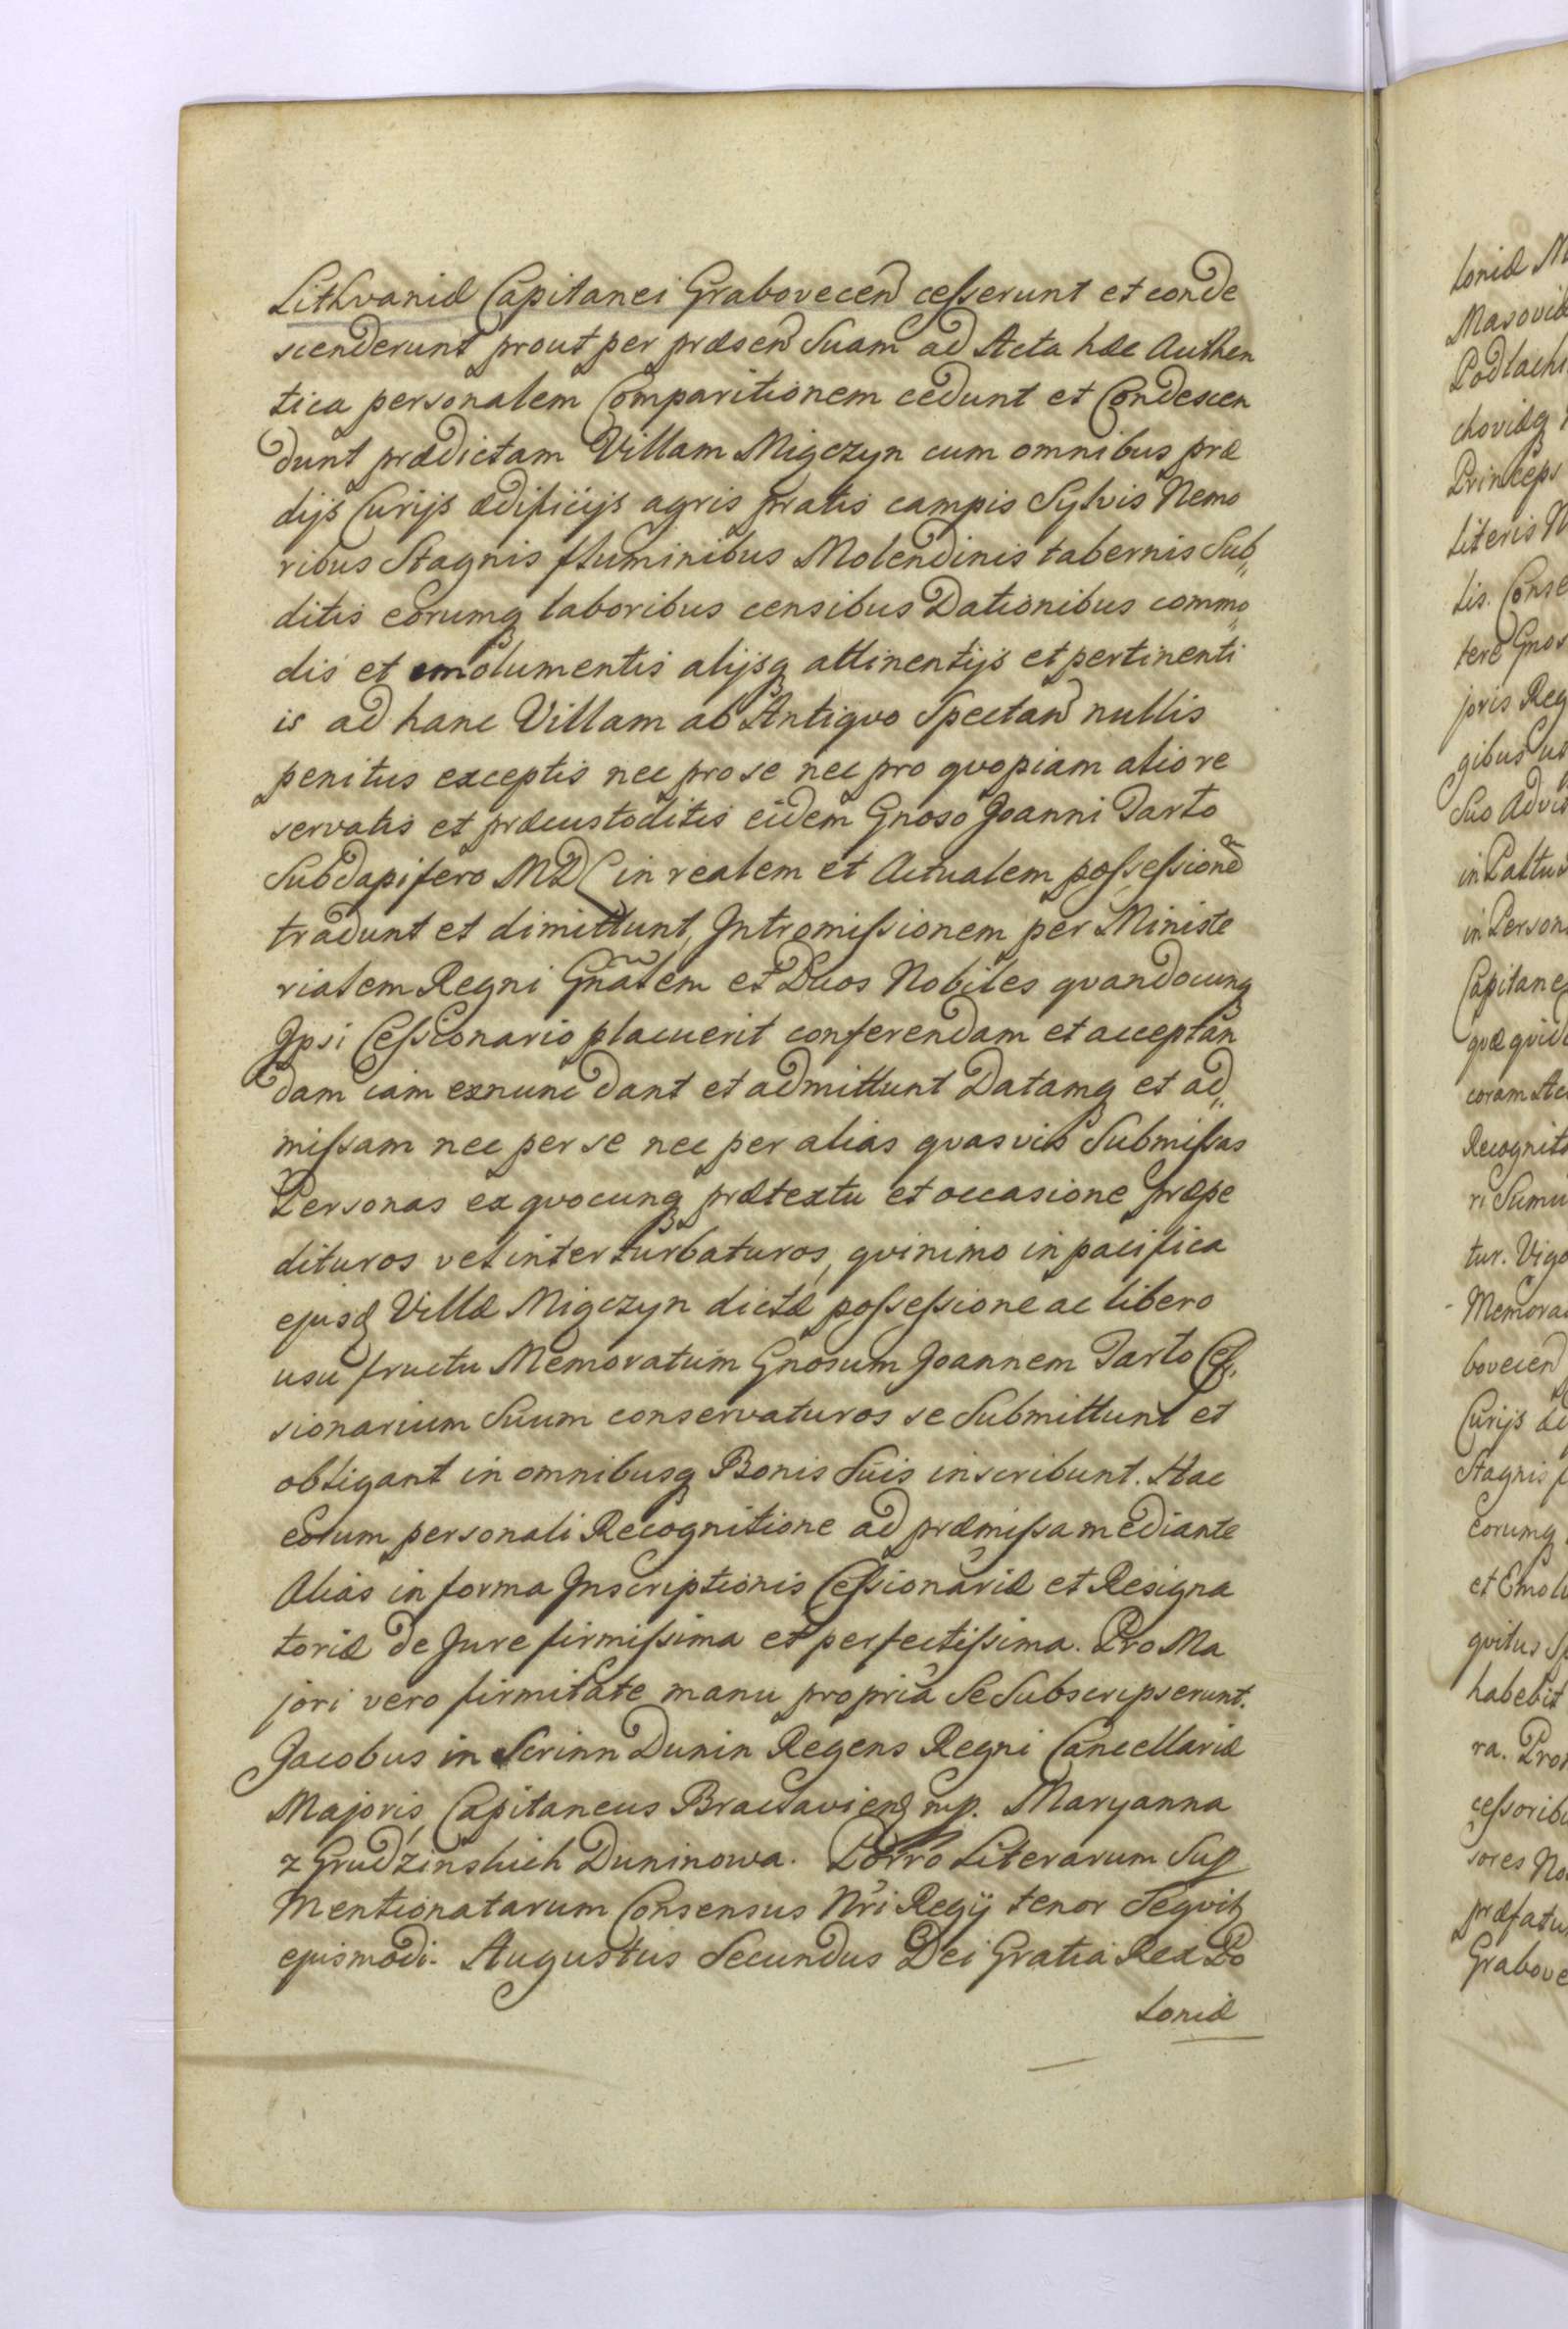 Lithvaniæ Capitanei Grabovecen̄ ceſserunt et conde
scenderunt prout per præsen̄ Suam ad Acta hæc Authen
tica personalem Comparitionem cedunt et Condescen
dunt prædictam Villam Migczyn cum omnibus præ
dijs Curijs ædificijs agris pratis campis Sylvis Nemo
ribus Stagnis fluminibus Molendinis tabernis Sub„
ditis eorumq laboribus censibus Dationibus commo„
dis et emolumentis alijsq attinentijs et pertinenti
is ad hanc Villam ab Antiqvo Spectan̄ nullis
penitus exceptis nec pro se nec pro qvopiam alio re
servatis et præcustoditis eidem Gnoso Joanni Tarto
Subdapifero MDL in realem et Actualem poſseſsionē
tradunt et dimittunt, Intromiſsionem per Ministe
rialem Regni Gn̄alem et Duos Nobiles qvandocunq
Ipsi Ceſsionario placuerit conferendam et acceptan
dam iam exnunc dant et admittunt Datamq et ad„
miſsam nec per se nec per alias qvasvis Submiſsas
Personas ex qvocunq prætextu et occasione præpe
dituros vel interturbaturos, qvinimo in pacifica
ejusd Villæ Migczyn dictæ poſseſsione ac libero
usu fructu Memoratum Gnosum Joannem Tarto Ceſ„
sionarium Suum conservaturos se Submittunt et
obligant in omnibusq Bonis Suis inscribunt. Hac
eorum personali Recognitione ad præmiſsa mediante
Alias in forma Inscriptionis Ceſsionariæ et Resigna
toriæ de Jure firmiſsima et perfectiſsima. Pro Ma
jori vero firmitate manu propria Se Subscripserunt.
Jacobus in Scrinn Dunin Regens Regni Cancellariæ
Majoris, Capitaneus Braclavien̄ mp. Maryanna
z Grudzinskich Duninowa. Porro Literarum Sup
mentionatarum Consensus Nr̄i Regij tenor Seqvitz
ejusmodi. Augustus Secundus Dei Gratia Rex Po
loniæ
loniæ
Masoviæ
Podlachi
choviæq
Princeps
Literis
lis. Conse
tere Gnos
joris Reg
gibus
Suo
in
in Person
Capitane
qvæ qvid
coram
Recognit
ri Sumu
tur. Vigo
Memora
bovecen̄
Curijs
Stagnis
Eorumq
et Emolu
qvitus
habebit
ra. Pro
ceſsorib
sores No
præfatu
Grabove